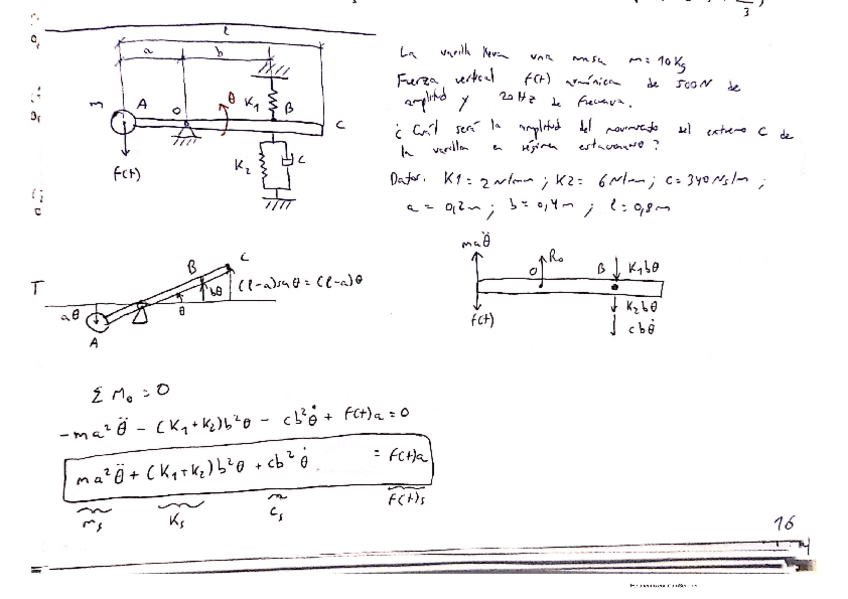 3
l
a b
m A O θ K1 B C
K2 c
f(t)
La varilla lleva una masa m = 10 Kg
Fuerza vertical f(t) armónica de 500N de
amplitud y 20 Hz de frecuencia.
¿Cuál será la amplitud del movimiento del extremo C de
la varilla en régimen estacionario?
Datos: K1 = 2 N/mm ; K2 = 6 N/mm ; c = 340 Ns/m ;
a = 0,2m ; b = 0,4m ; l = 0,8m
T
B C
(l-a)senθ = (l-a)θ
aθ θ bθ
A
maθ̈
O R₀ B K1bθ
f(t) K2bθ
cbθ̇
Σ M₀ = 0
-ma²θ̈ - (K1+K2)b²θ - cb²θ̇ + f(t)a = 0
ma²θ̈ + (K1+K2)b²θ + cb²θ̇ = f(t)a
ms Ks cs f(t)s
16